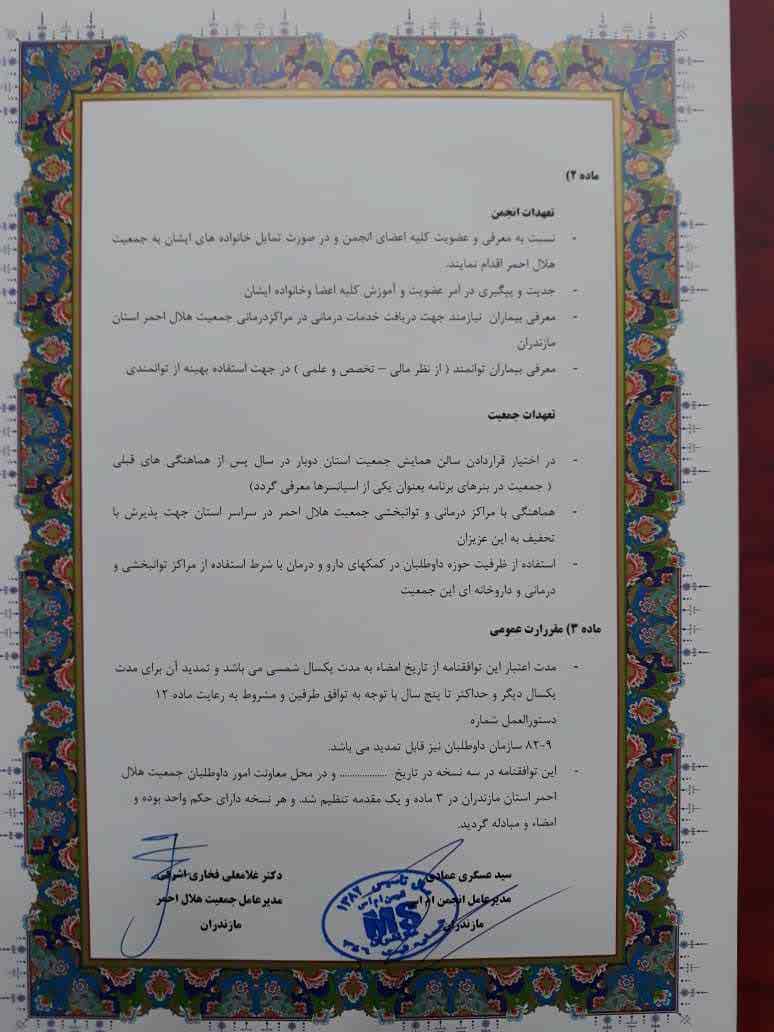 ماده ۲)
تعهدات انجمن
- نسبت به معرفی و عضویت کلیه اعضای انجمن و در صورت تمایل خانواده های ایشان به جمعیت
هلال احمر اقدام نمایند.
- جدیت و پیگیری در امر عضویت و آموزش کلیه اعضا وخانواده ایشان
- معرفی بیماران نیازمند جهت دریافت خدمات درمانی در مراکزدرمانی جمعیت هلال احمر استان
مازندران
- معرفی بیماران توانمند ( از نظر مالی – تخصص و علمی ) در جهت استفاده بهینه از توانمندی
تعهدات جمعیت
- در اختیار قراردادن سالن همایش جمعیت استان دوبار در سال پس از هماهنگی های قبلی
( جمعیت در بنرهای برنامه بعنوان یکی از اسپانسرها معرفی گردد)
- هماهنگی با مراکز درمانی و توانبخشی جمعیت هلال احمر در سراسر استان جهت پذیرش با
تخفیف به این عزیزان
- استفاده از ظرفیت حوزه داوطلبان در کمکهای دارو و درمان با شرط استفاده از مراکز توانبخشی و
درمانی و داروخانه ای این جمعیت
ماده ۳) مقررارت عمومی
- مدت اعتبار این توافقنامه از تاریخ امضاء به مدت یکسال شمسی می باشد و تمدید آن برای مدت
یکسال دیگر و حداکثر تا پنج سال با توجه به توافق طرفین و مشروط به رعایت ماده ۱۲
دستورالعمل شماره
۸۲-۹ سازمان داوطلبان نیز قابل تمدید می باشد.
- این توافقنامه در سه نسخه در تاریخ .................. و در محل معاونت امور داوطلبان جمعیت هلال
احمر استان مازندران در ۳ ماده و یک مقدمه تنظیم شد. و هر نسخه دارای حکم واحد بوده و
امضاء و مبادله گردید.
سید عسگری عمادی
مدیرعامل انجمن ام اس
مازندران
دکتر غلامعلی فخاری اشرفی
مدیرعامل جمعیت هلال احمر
مازندران
سال تاسیس ۱۳۸۲
انجمن ام اس
MS